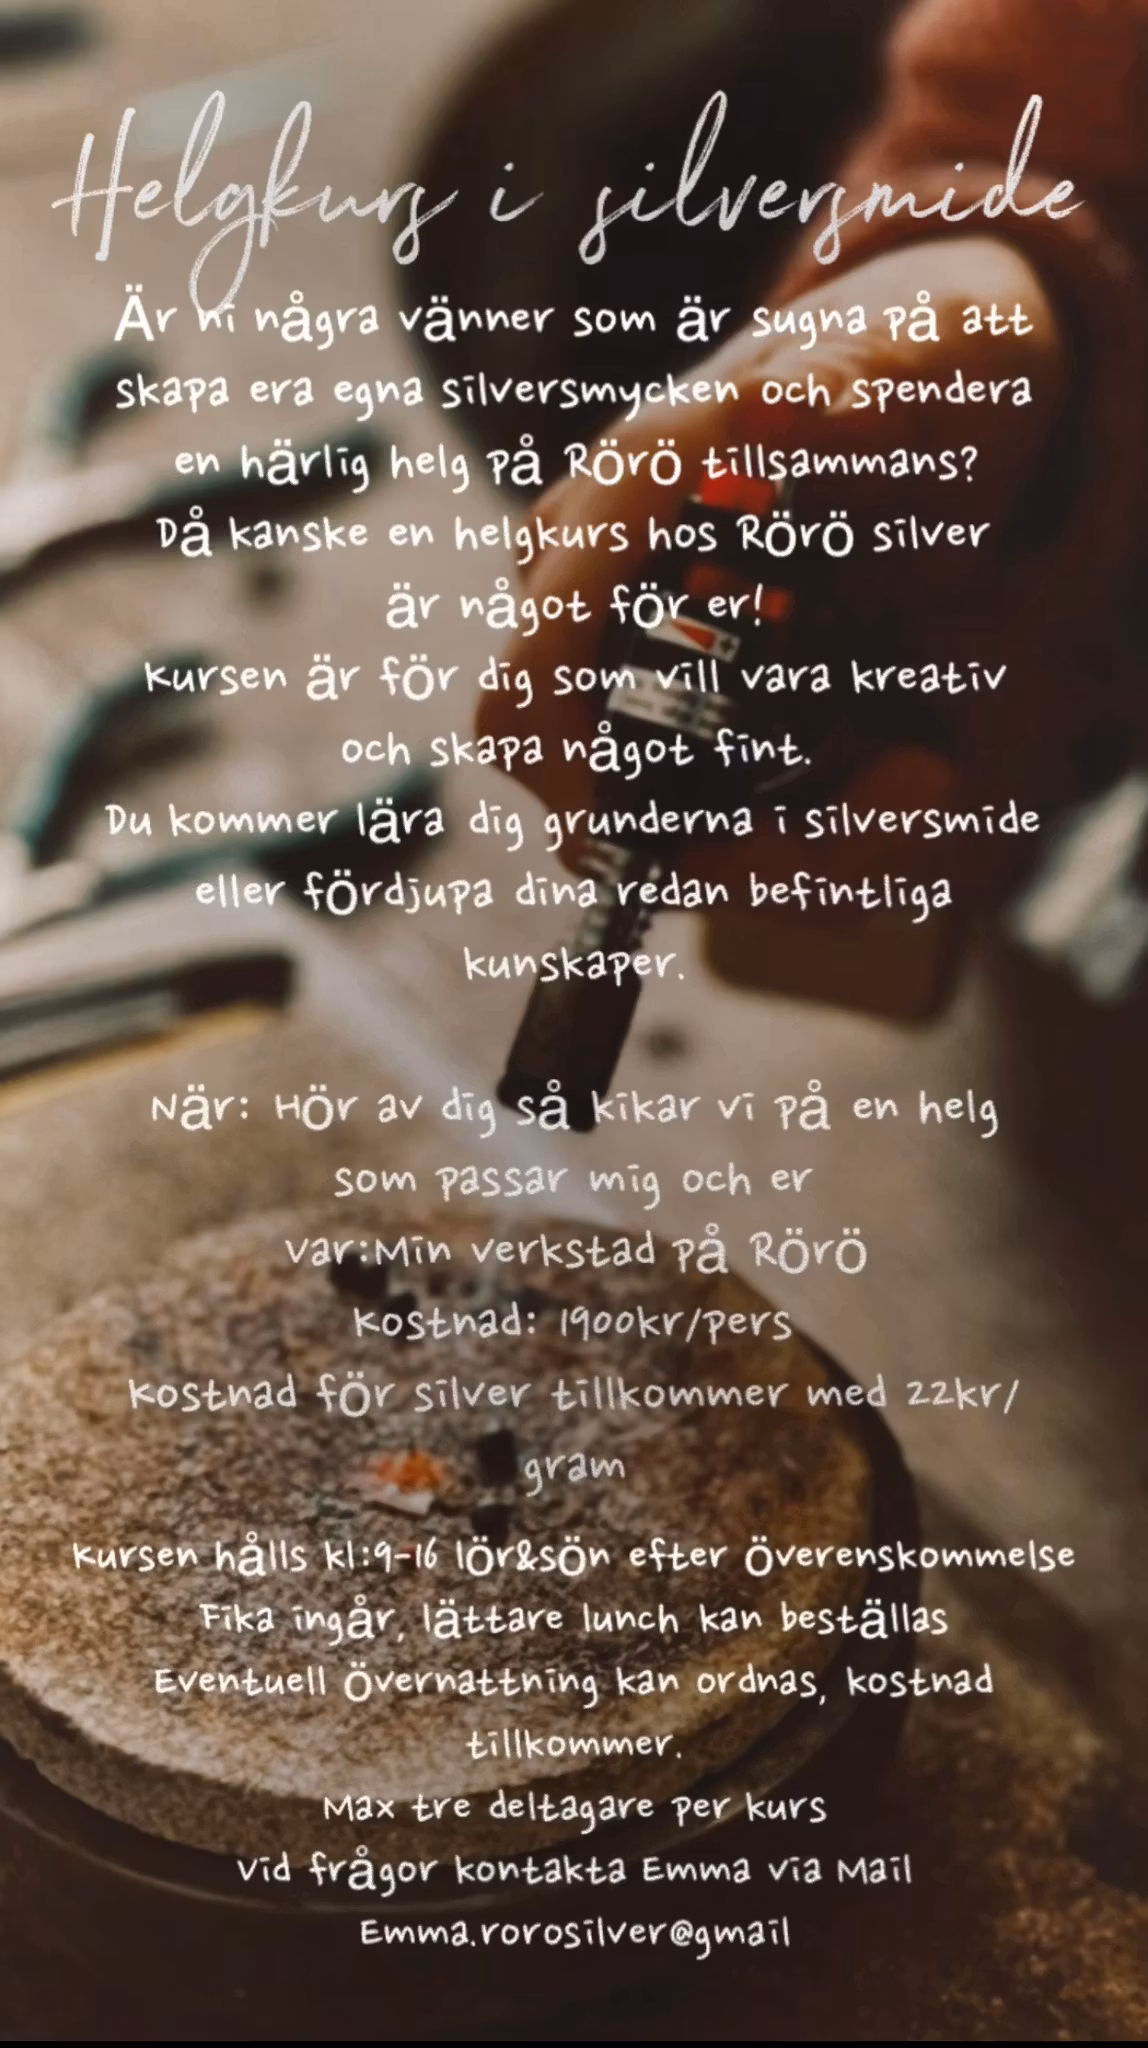 Helgkurs i silversmide
Är ni några vänner som är sugna på att
skapa era egna silversmycken och spendera
en härlig helg på Rörö tillsammans?
Då kanske en helgkurs hos Rörö silver
är något för er!
Kursen är för dig som vill vara kreativ
och skapa något fint.
Du kommer lära dig grunderna i silversmide
eller fördjupa dina redan befintliga
kunskaper.
När: Hör av dig så kikar vi på en helg
som passar mig och er
Var:Min verkstad på Rörö
Kostnad: 1900kr/pers
Kostnad för silver tillkommer med 22kr/
gram
Kursen hålls kl:9-16 lör&sön efter överenskommelse
Fika ingår, lättare lunch kan beställas
Eventuell övernattning kan ordnas, kostnad
tillkommer.
Max tre deltagare per kurs
Vid frågor kontakta Emma via Mail
Emma.rorosilver@gmail